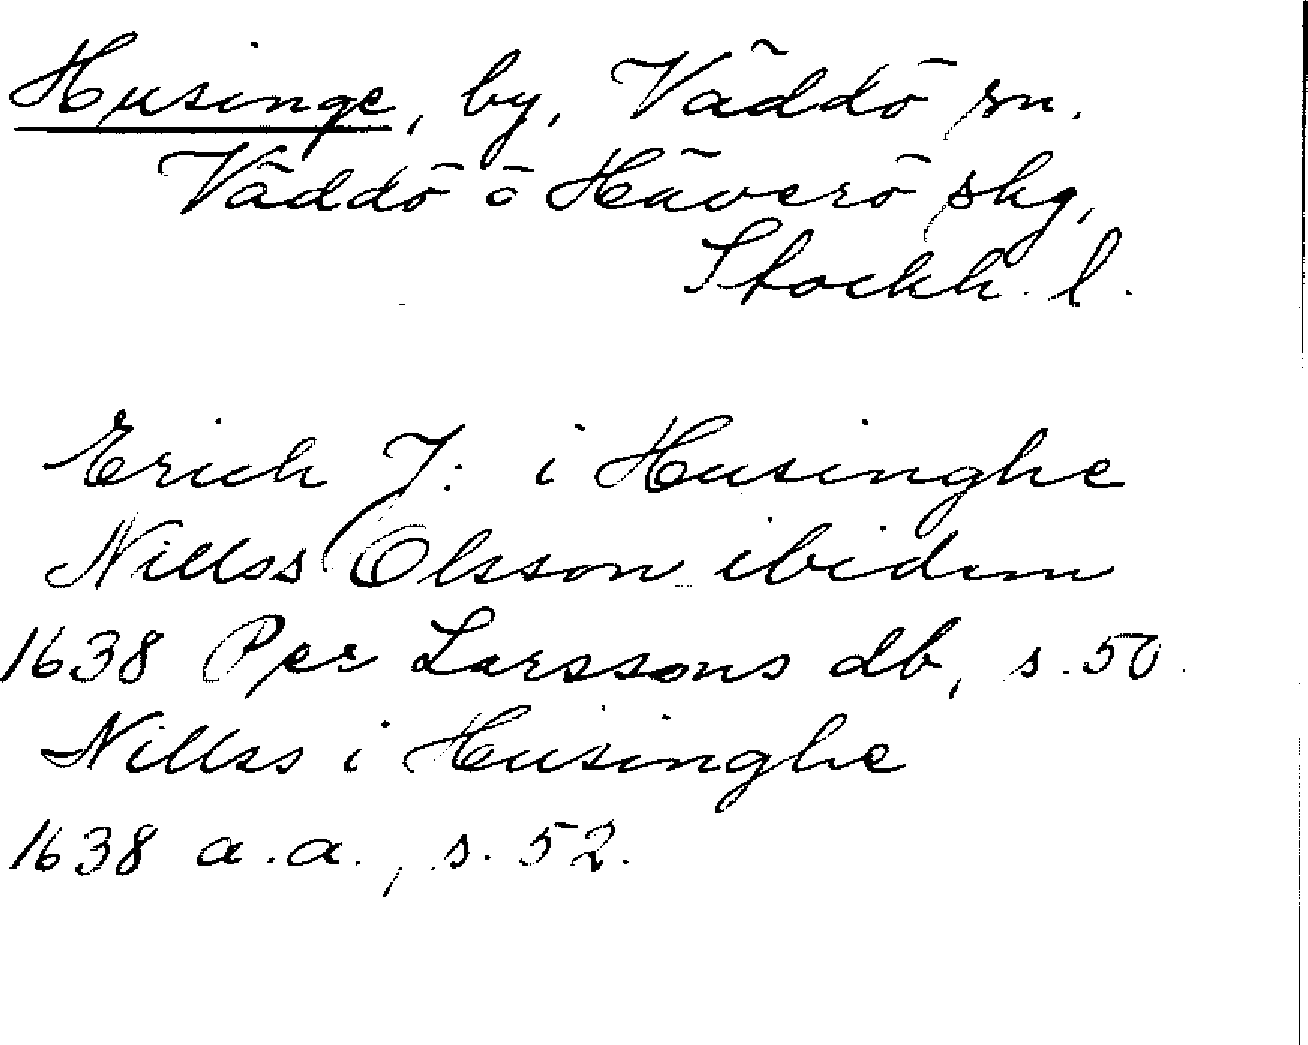 Husinge, by, Väddö sn.
Väddö o Häverö skg,
Stockh. l.
Erich J: i Husinghe
Nillss Olsson ibidem
1638 Per Larssons db, s. 50.
Nillss i Husinghe
1638 a.a., s. 52.